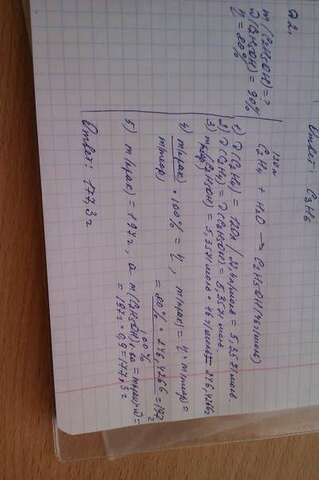 Ответ: C3H6
№2.
m(C2H5OH) = ?
ω(C2H5OH) = 90%
η = 80%
120л
C2H4 + H2O → C2H5OH (техничес)
1) ν(C2H4) = 120л / 22,4л/моль = 5,357 моль.
2) ν(C2H4) = ν(C2H5OH) = 5,357 моль
3) m теор (C2H5OH) = 5,357 моль * 46 г/моль = 246,426г
4) m(прак) / m(теор) * 100% = η, m(прак) = η * m(теор) / 100% =
= 80% * 246,426г = 197г
5) m(прак) = 197г, а m(C2H5OH),
= 197г * 0,9 = 177,3г
Ответ: 177,3г